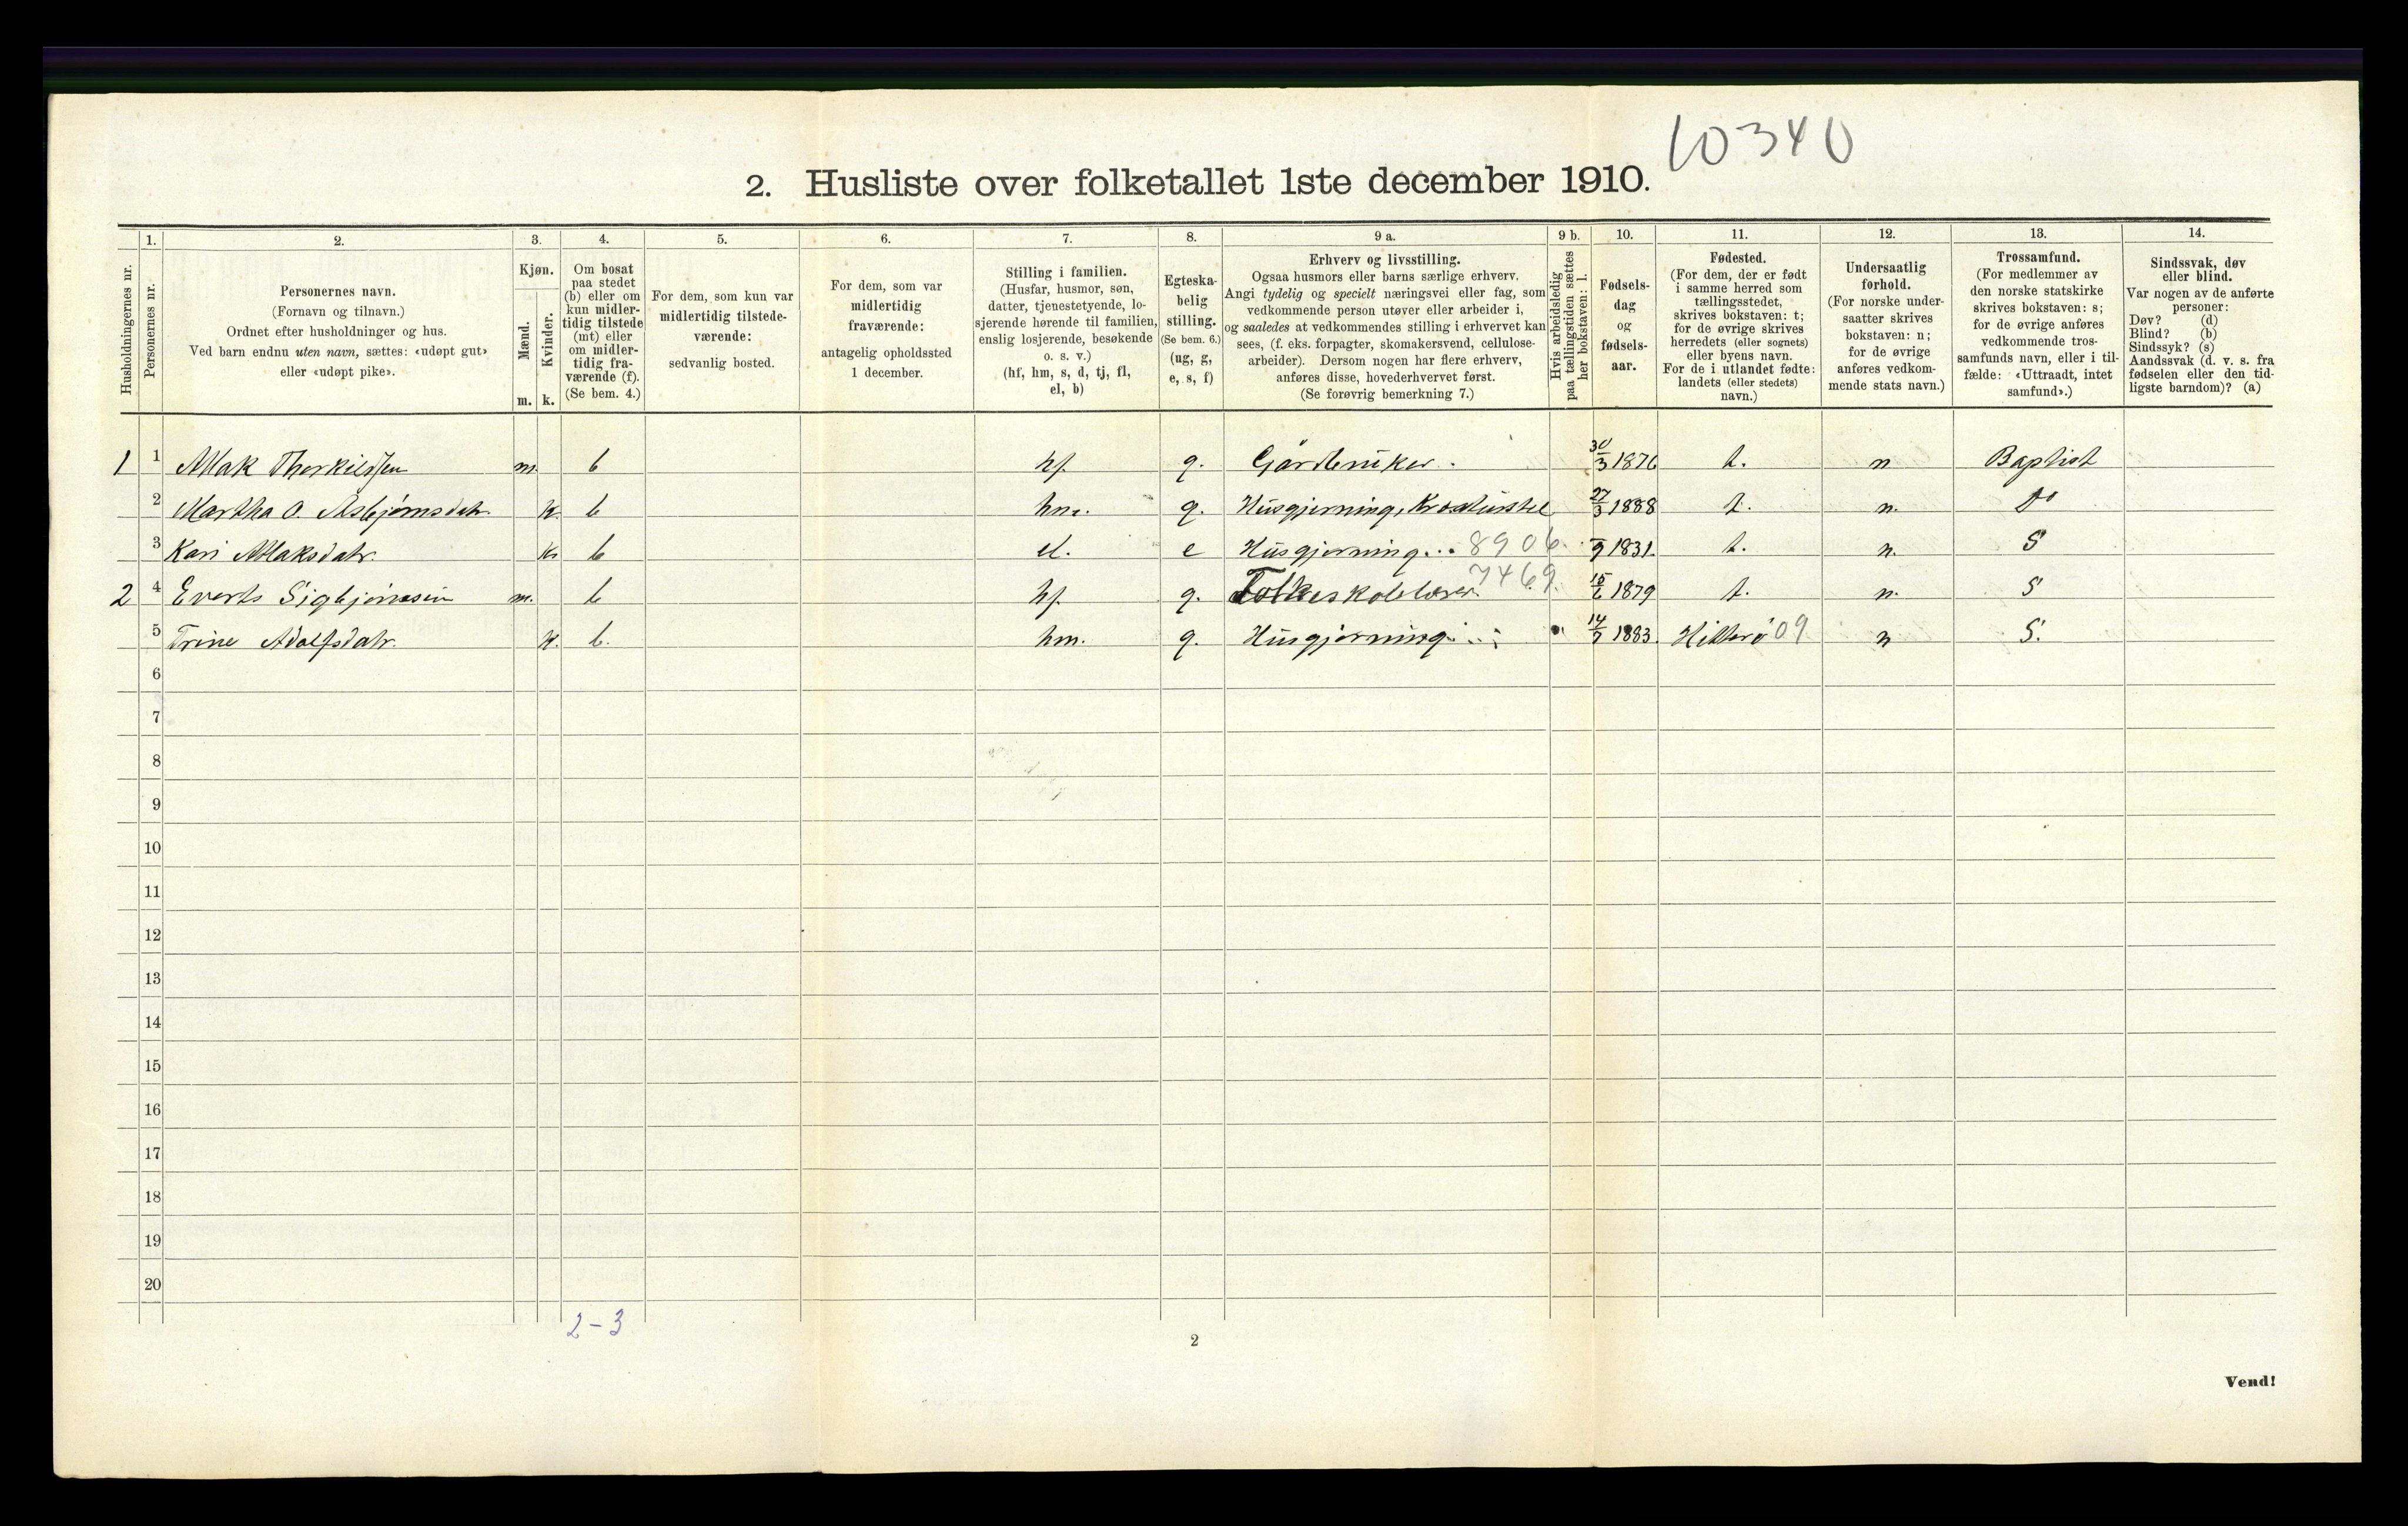 10340
2. Husliste over folketallet 1ste december 1910.
Husholdningernes nr.
1. Personernes nr.
2. Personernes navn.
(Fornavn og tilnavn.)
Ordnet efter husholdninger og hus.
Ved barn endnu uten navn, sættes: «udøpt gut»
eller «udøpt pike».
3. Kjøn.
Mænd. Kvinder.
m. k.
4. Om bosat
paa stedet
(b) eller om
kun midler-
tidig tilstede
(mt) eller
om midler-
tidig fra-
værende (f).
(Se bem. 4.)
5. For dem, som kun var
midlertidig tilstede-
værende:
sedvanlig bosted.
6. For dem, som var
midlertidig
fraværende:
antagelig opholdssted
1 december.
7. Stilling i familien.
(Husfar, husmor, søn,
datter, tjenestetyende, lo-
sjerende hørende til familien,
enslig losjerende, besøkende
o. s. v.)
(hf, hm, s, d, tj, fl,
el, b)
8. Egteska-
belig
stilling.
(Se bem. 6.)
(ug, g,
e, s, f)
9 a. Erhverv og livsstilling.
Ogsaa husmors eller barns særlige erhverv.
Angi tydelig og specielt næringsvei eller fag, som
vedkommende person utøver eller arbeider i,
og saaledes at vedkommendes stilling i erhvervet kan
sees, (f. eks. forpagter, skomakersvend, cellulose-
arbeider). Dersom nogen har flere erhverv,
anføres disse, hovederhvervet først.
(Se forøvrig bemerkning 7.)
9 b. Hvis arbeidsledig
paa tællingstiden sættes
her bokstaven: l.
10. Fødsels-
dag
og
fødsels-
aar.
11. Fødested.
(For dem, der er født
i samme herred som
tællingsstedet,
skrives bokstaven: t;
for de øvrige skrives
herredets (eller sognets)
eller byens navn.
For de i utlandet fødte:
landets (eller stedets)
navn.)
12. Undersaatlig
forhold.
(For norske under-
saatter skrives
bokstaven: n;
for de øvrige
anføres vedkom-
mende stats navn.)
13. Trossamfund.
(For medlemmer av
den norske statskirke
skrives bokstaven: s;
for de øvrige anføres
vedkommende tros-
samfunds navn, eller i til-
fælde: «Uttraadt, intet
samfund».)
14. Sindssvak, døv
eller blind.
Var nogen av de anførte
personer:
Døv? (d)
Blind? (b)
Sindssyk? (s)
Aandssvak (d. v. s. fra
fødselen eller den tid-
ligste barndom)? (a)
1 1 Atlak Thorkildsen m. b hf. g. Gårdbruker. 30/3 1876 t. n Baptist
2 Martha O. Asbjörnsdatr. k. b hm. g. Husgjerning, Kreaturstel 27/3 1888 t. n. Do
3 Kari Atlaksdatr. k. b el. e Husgjerning... 8906. /9 1831. t. n. S
2 4 Everts Sigbjörnsen m. b hf. g. Folkeskolelærer. 7469. 15/6 1879 t. n. S
5 Trine Adolfsdatr. k. b. hm. g. Husgjerning... 14/7 1883. Hitterö 09 n S.
6
7
8
9
10
11
12
13
14
15
16
17
18
19
20
2-3
2
Vend!